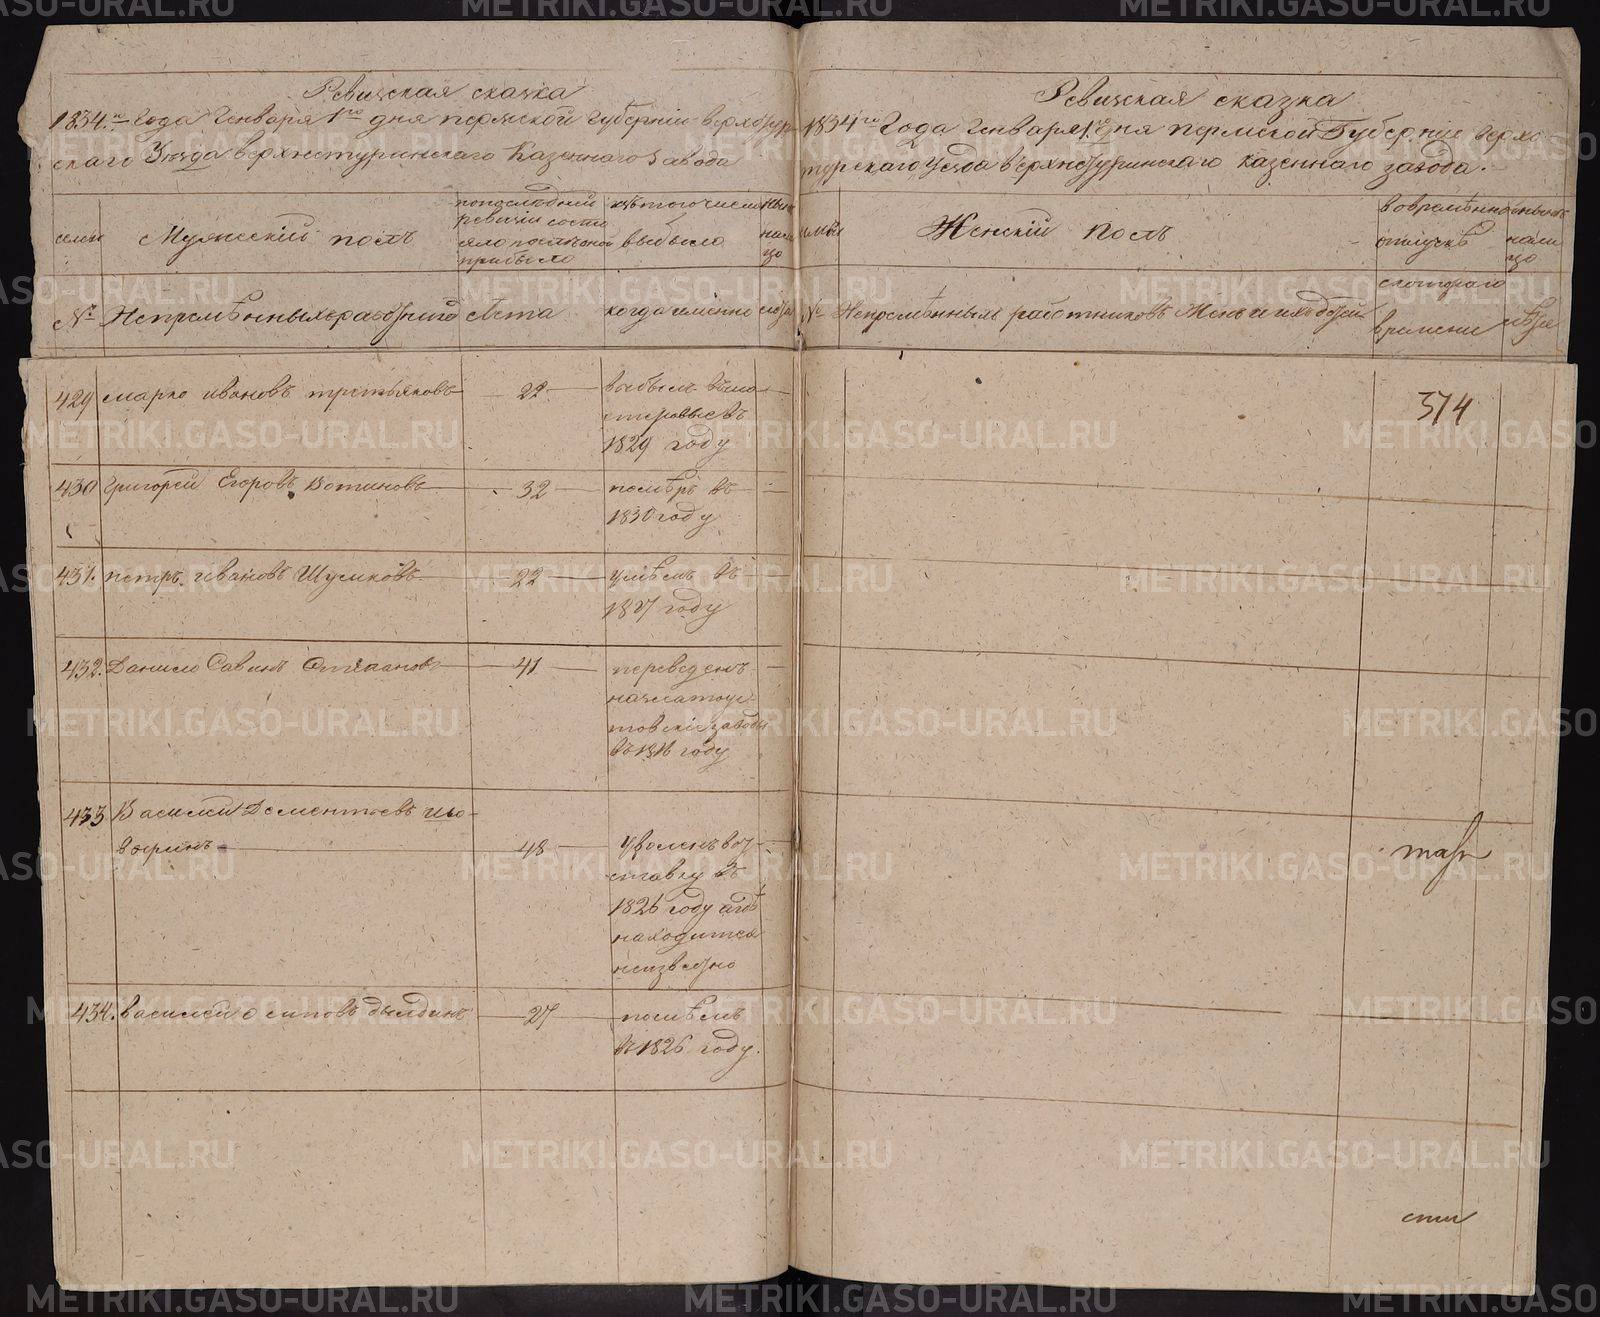 Ревизская сказка
1834.го Года Генваря 1го дня пермской губернии верхотур
скаго Уезда верхнетуринскаго Казеннаго завода
семьи
Мужеский полъ
попоследней
ревизии состо
яло и после оной
прибыло
изъ того числа
выбыло
ныне
нали
цо
№ Непременныхъ работниковъ
лета
когда именно
лета
429 марко ивановъ третьяковъ 22
430 григорей Егоровъ Вотиновъ 32
1829 году
померъ въ
1830 году
431. петръ ивановъ Шумковъ 22
умремъ въ
1827 году
432. Данило Савинъ Степановъ 41
переведенъ
назлатоус
товские заводы
въ 1816 году
433 Василей Дементьевъ
48
уволенъ вот
ставку въ
1826 году а где
находится
неизвестно
434. василей осиповъ дылдинъ 27
въ 1826 году.
Ревизская сказка
1834го Года Генваря 1го дня пермской Губернии верхо
турскаго уезда верхнетуринскаго казеннаго завода.
семьи
Женский полъ
вовременной
отлучке
ныне
нали
цо
№ Непременныхъ работниковъ Жены и ихъ дочери
скотораго
времени
лета
374